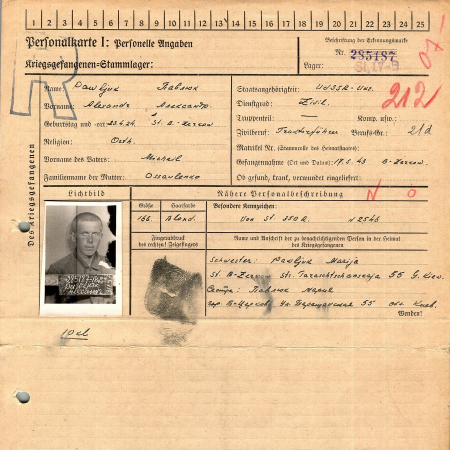 1 2 3 4 5 6 7 8 9 10 11 12 13 14 15 16 17 18 19 20 21 22 23 24 25
Personalkarte I: Personelle Angaben
Kriegsgefangenen-Stammlager:
Beschriftung der Erkennungsmarke
Nr. 285187
Lager:
R
Des Kriegsgefangenen
Name: Pawljuk Павлюк
Vorname: Alexandr Александр
Geburtstag und -ort 23.4.24. St. B-Zerkow
Religion: Orth.
Vorname des Vaters: Michail
Familienname der Mutter:
Staatsangehörigkeit: UdSSR-Ukr.
Dienstgrad: Zivil.
Truppenteil: — Komp. usw.:
Zivilberuf: Traktorführer Berufs-Gr.: 21d
212
Matrikel Nr. (Stammrolle des Heimatstaates):
Gefangennahme (Ort und Datum): 17.5.43 B-Zerkow.
Ob gesund, krank, verwundet eingeliefert:
N O
Lichtbild
Nähere Personalbeschreibung
Größe Haarfarbe Besondere Kennzeichen:
166. Blond. Von St. 350 R. N 2546
Fingerabdruck des rechten! Zeigefingers
Name und Anschrift der zu benachrichtigenden Person in der Heimat des Kriegsgefangenen
Schwester: Pawljuk Marija
St. B-Zerkow str. 55 G. Kiew.
Сестра: Павлюк Мария
гор. Б-Церковь ул. 55 обл. Киев.
Wenden!